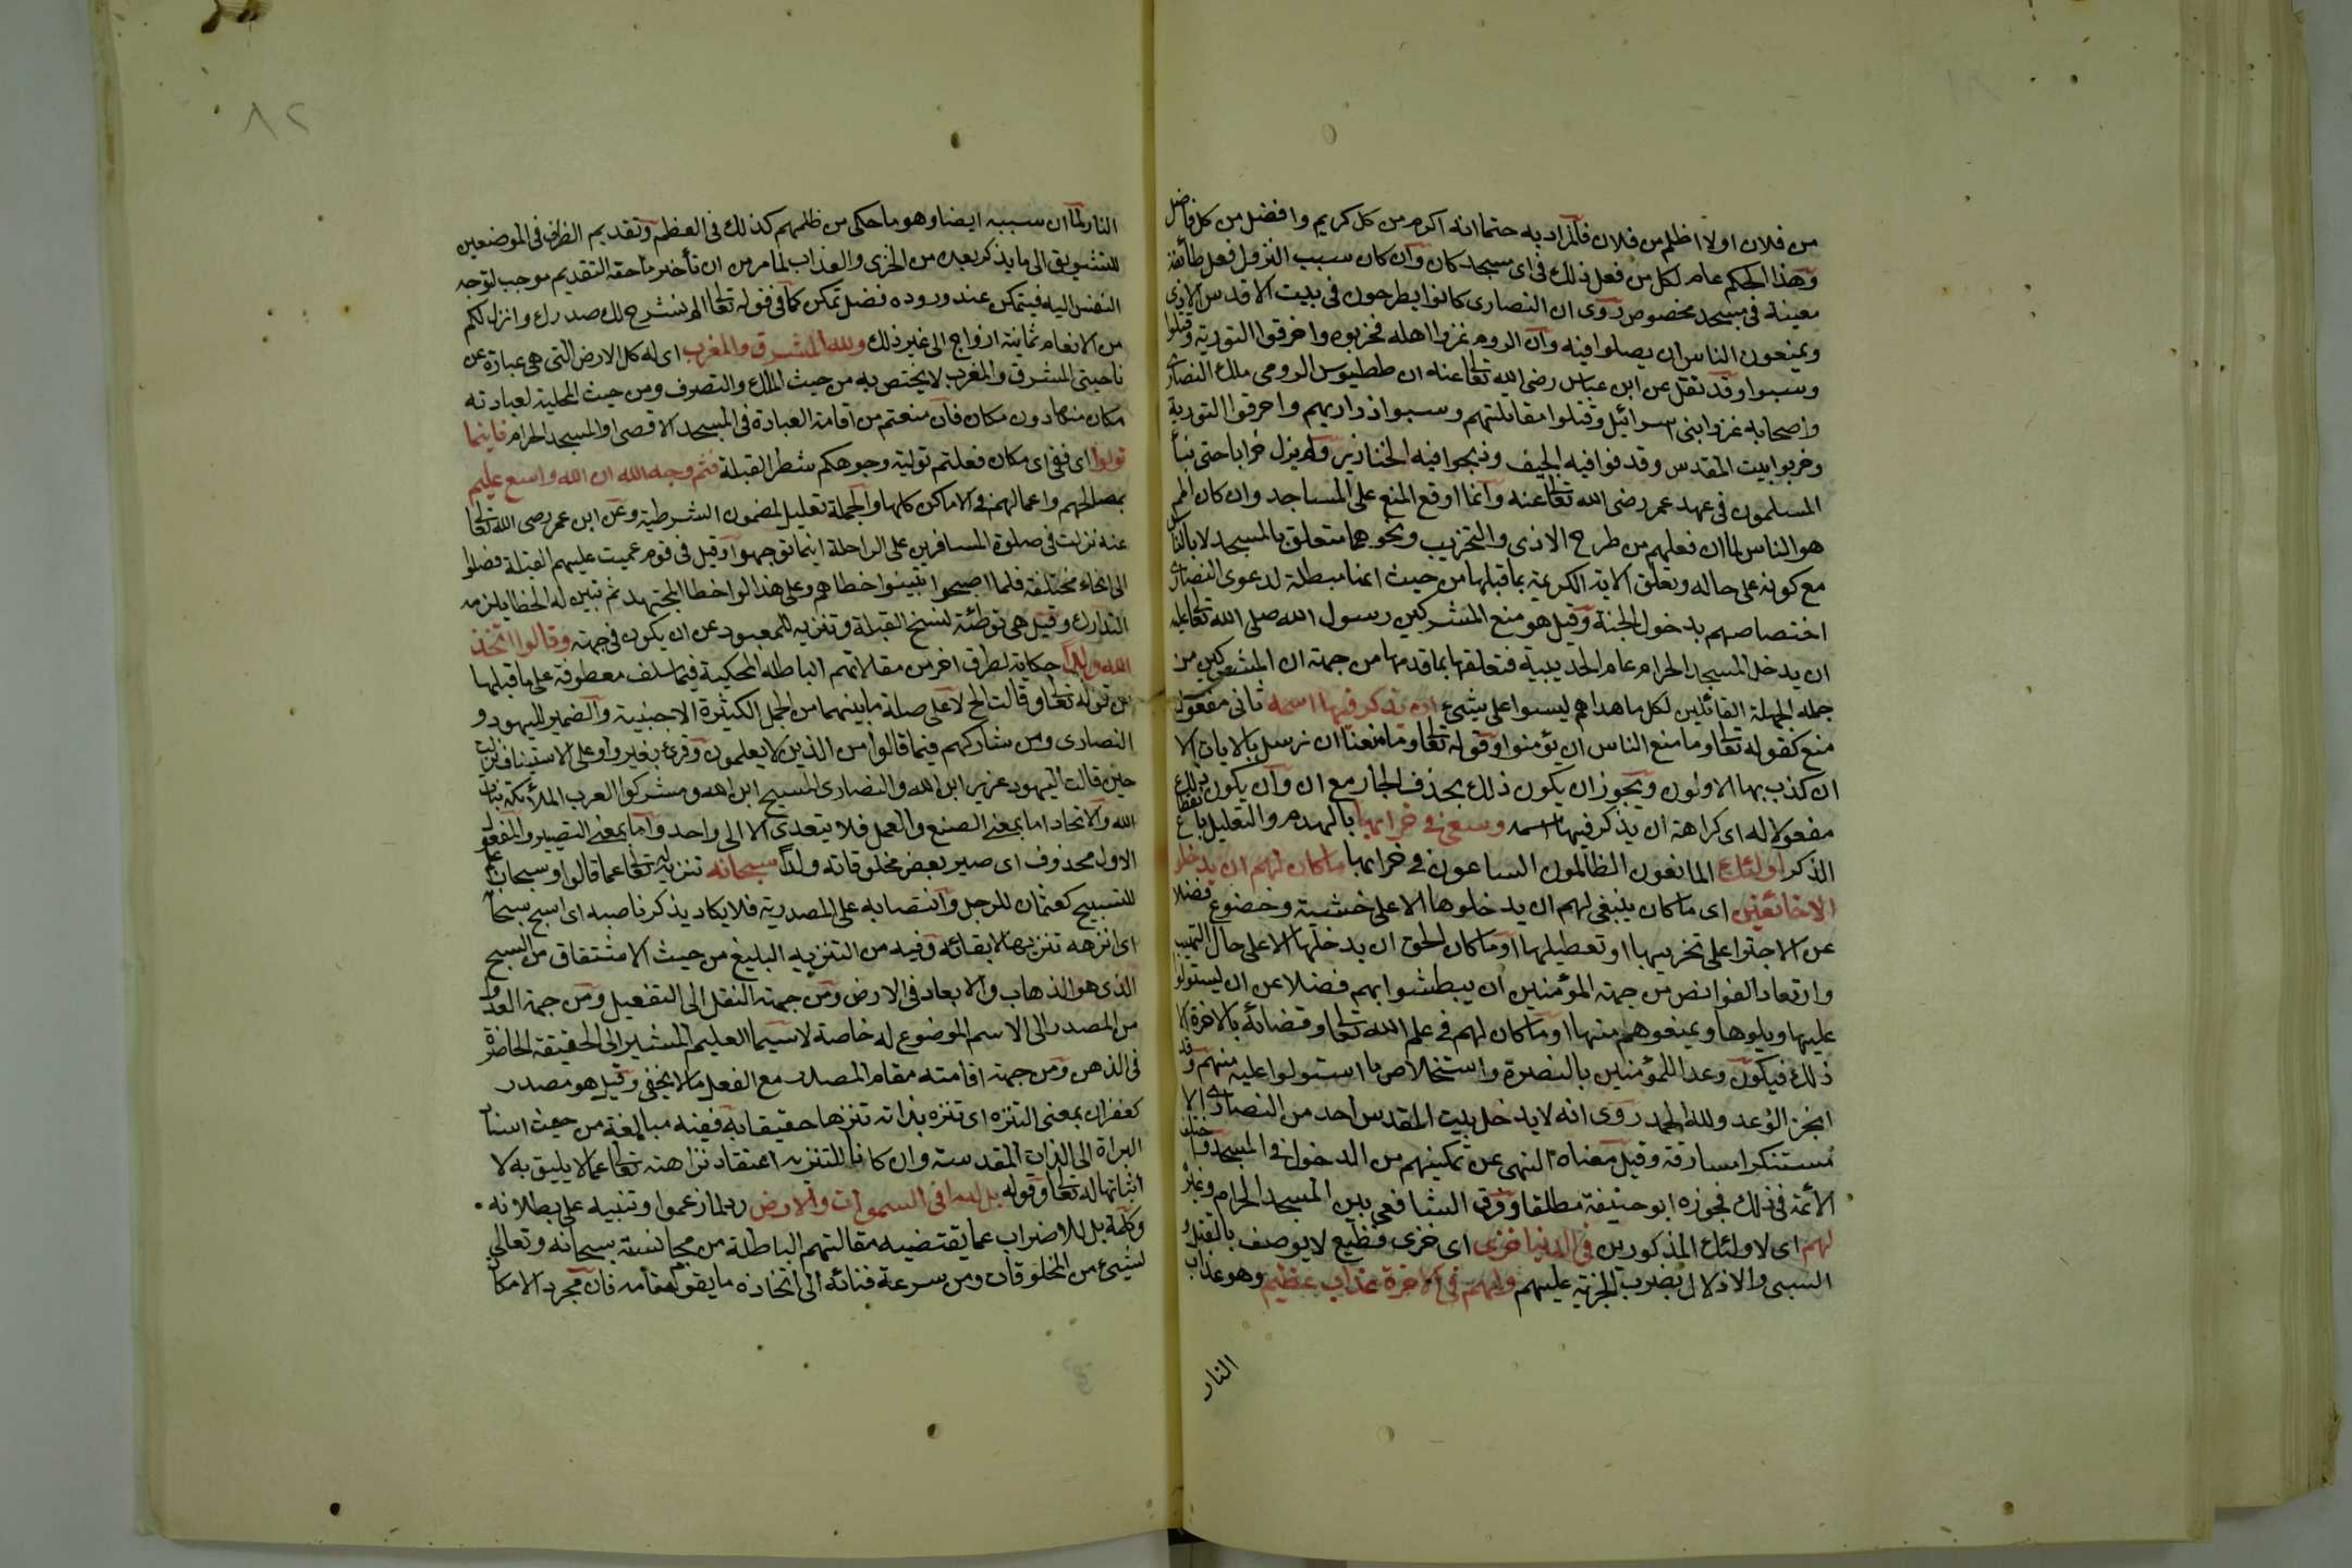 من فلان اولا اظلم من فلان فالمراد به حتما انه اكرم من كل كريم وافضل من كل فاضل
وهذا الحكم عام لكل من فعل ذلك في اى مسجد كان وان كان سبب النزول فعل طائفة
معينة في مسجد مخصوص روى ان النصارى كانوا يطرحون في بيت الاقدس الاذى
ويمنعون الناس ان يصلوا فيه وان الروم غزوا اهله فخربوه واحرقوا التورية وقتلوا
وسبوا وقد نقل عن ابن عباس رضى الله تعالى عنه ان ططيوس الرومى ملك النصارى
واصحابه غزوا بنى اسرائيل وقتلوا مقاتلتهم وسبوا ذراريهم واحرقوا التورية
وخربوا بيت المقدس وقدفوا فيه الجيف وذبحوا فيه الخنازير ولم يزل خرابا حتى بناه
المسلمون في عهد عمر رضى الله تعالى عنه وانما اوقع المنع على المساجد وان كان
هو الناس لما ان فعلهم من طرح الاذى والتخريب ونحوهما متعلق بالمسجد لا بالناس
مع كونه على حاله وتعلق الاية الكريمة بما قبلها من حيث انها مبطلة لدعوى النصارى
اختصاصهم بدخول الجنة وقيل هو منع المشركين رسول الله صلى الله تعالى عليه
ان يدخل المسجد الحرام عام الحديبية فتعلقها بما قدمها من جهة ان المشركين من
جملة الجهلة القائلين لكل ما هداهم ليسوا على شيئ ان يذكر فيها اسمه ثانى مفعولى
منع كقوله تعالى وما منع الناس ان يؤمنوا وقوله تعالى وما منعنا ان نرسل بالايات الا
ان كذب بها الاولون ويجوز ان يكون ذلك بحذف الجار مع ان وان يكون ذلك
مفعولا له اى كراهة ان يذكر فيها اسمه وسعى في خرابها بالهدم والتعطيل بانقطاع
الذكر اولئك المانعون الظالمون الساعون في خرابها ما كان لهم ان يدخلو
الا خائفين اى ما كان ينبغى لهم ان يدخلوها الا على خشية وخضوع فضلا
عن الاجتراء على تخريبها او تعطيلها او ما كان الحق ان يدخلوها الا على حال التهيب
وارتعاد الفرائص من جهة المؤمنين ان يبطشوا بهم فضلا عن ان يستولوا
عليها ويلوها ويمنعوهم منها او ما كان لهم في علم الله تعالى وقضائه بالاخرة الا
ذلك فيكون وعدا للمؤمنين بالنصرة واستخلاص ما استولوا عليه منهم وقد
انجز الوعد ولله الحمد روى انه لا يدخل بيت المقدس احد من النصارى الا
مستنكرا مسارقة وقيل معناه النهى عن تمكينهم من الدخول في المسجد واختلف
الائمة في ذلك فجوزه ابو حنيفة مطلقا وفرق الشافعى بين المسجد الحرام وغيره
لهم اى لاولئك المذكورين في الدنيا خزى اى خزى فظيع لا يوصف بالقتل و
السبى والاذلال بضرب الجزية عليهم ولهم في الاخرة عذاب عظيم وهو عذاب
النار
٨٢
النار لما ان سببه ايضا وهو ما حكى من ظلمهم كذلك في العظم وتقديم الظرف في الموضعين
للتشويق الى ما يذكر بعده من الخزى والعذاب لما مر من ان تأخير ما حقه التقديم موجب لتوجه
النفس اليه فيتمكن عند وروده فضل تمكن كما في قوله تعالى الم نشرح لك صدرك وانزل لكم
من الانعام ثمانية ازواج الى غير ذلك ولله المشرق والمغرب اى له كل الارض التى هى عبارة عن
ناحيتى المشرق والمغرب لا يختص به من حيث الملك والتصرف ومن حيث المحلية لعبادته
مكان منها دون مكان فان منعتم من اقامة العبادة في المسجد الاقصى او المسجد الحرام فاينما
تولوا اى ففى اى مكان فعلتم تولية وجوهكم شطر القبلة فثم وجه الله ان الله واسع عليم
بمصالحهم واعمالهم في الاماكن كلها والجملة تعليل لمضمون الشرطية وعن ابن عمر رضى الله تعالى
عنه نزلت في صلوة المسافرين على الراحلة اينما توجهوا وقيل في قوم عميت عليهم القبلة فصلوا
الى انحاء مختلفة فلما اصبحوا تبينوا خطاهم وعلى هذا لو اخطا المجتهد ثم تبين له الخطا لم يلزمه
التدارك وقيل هى توطئة لنسخ القبلة وتنزيه للمعبود عن ان يكون في جهة وقالوا اتخذ
الله ولدا حكاية لطرف اخر من مقالاتهم الباطلة المحكية فيما سلف معطوفة على ما قبلها
من قوله تعالى وقالت الخ لا على صلة ما بينهما من الجمل الكثيرة الاجنبية والضمير لليهود و
النصارى ومن شاركهم فيما قالوا من الذين لا يعلمون وقرئ بغير واو على الاستيناف نزلت
حين قالت اليهود عزير ابن الله والنصارى المسيح ابن الله ومشركوا العرب الملائكة بنات
الله والاتخاذ اما بمعنى الصنع والعمل فلا يتعدى الا الى واحد واما بمعنى التصيير والمفعول
الاول محذوف اى صير بعض مخلوقاته ولدا سبحانه تنزيه له تعالى عما قالوا وسبحان علم
للتسبيح كعثمان للرجل وانتصابه على المصدرية فلا يكاد يذكر ناصبه اى اسبح سبحانه
اى انزهه تنزيها لائقا به وفيه من التنزيه البليغ من حيث الاشتقاق من السبح
الذى هو الذهاب والابعاد في الارض ومن جهة النقل الى التفعيل ومن جهة العدول
من المصدر الى الاسم الموضوع له خاصة لا سيما العلم المشير الى الحقيقة الحاضرة
في الذهن ومن جهة اقامته مقام المصدر مع الفعل ما لا يخفى وقيل هو مصدر
كغفران بمعنى التنزه اى تنزه بذاته تنزها حقيقا به ففيه مبالغة من حيث اسناد
البراة الى الذات المقدسة وان كان التنزيه اعتقاد نزاهته تعالى عما لا يليق به لا
اثباتها له تعالى وقوله بل له ما في السموات والارض رد لما زعموا وتنبيه على بطلانه
وكلمة بل للاضراب عما تقتضيه مقالتهم الباطلة من مجانسته سبحانه وتعالى
لشيئ من المخلوقات ومن سرعة فنائه المحوجة الى اتخاذه ما يقوم مقامه فان مجرد الامكان